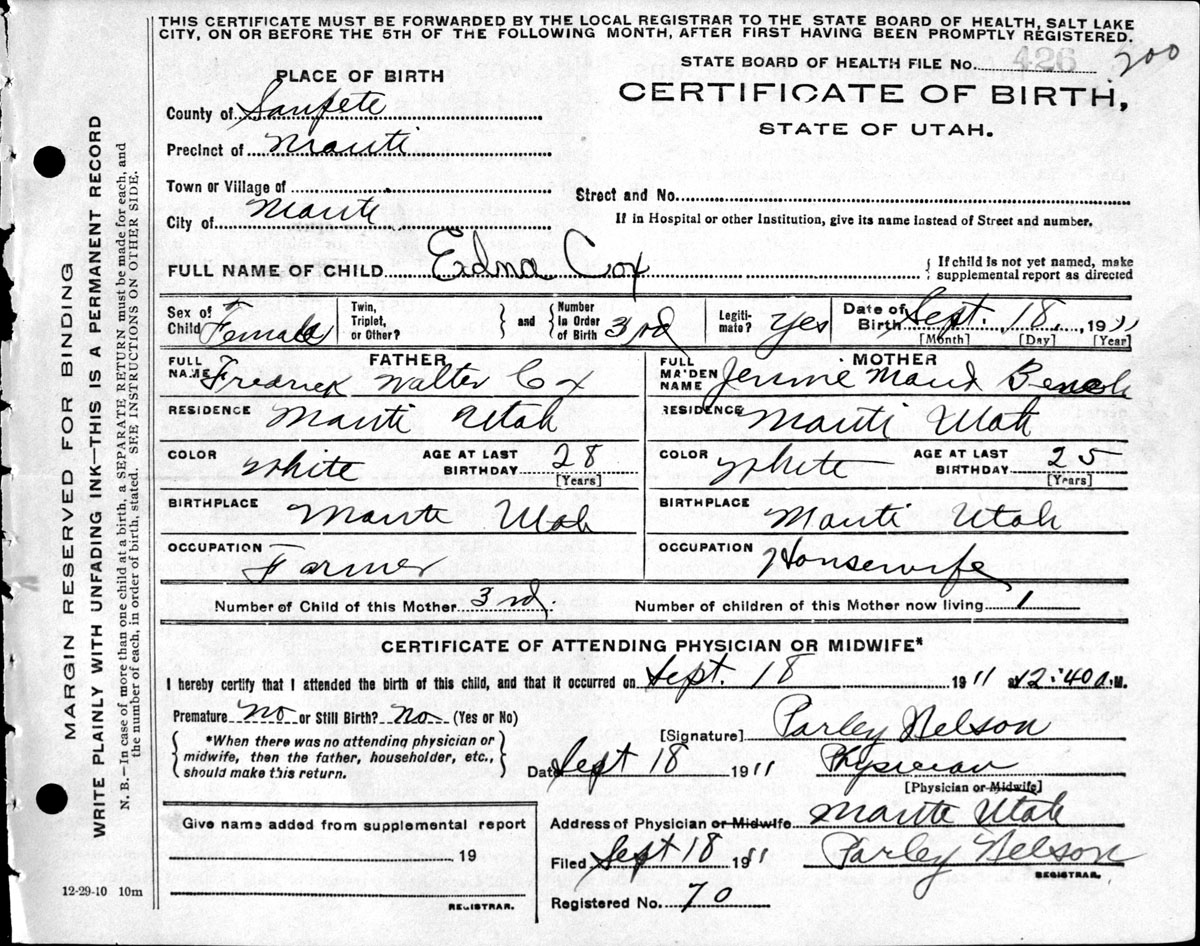 THIS CERTIFICATE MUST BE FORWARDED BY THE LOCAL REGISTRAR TO THE STATE BOARD OF HEALTH, SALT LAKE
CITY, ON OR BEFORE THE 5TH OF THE FOLLOWING MONTH, AFTER FIRST HAVING BEEN PROMPTLY REGISTERED.
STATE BOARD OF HEALTH FILE No. 426 200
PLACE OF BIRTH
CERTIFICATE OF BIRTH,
STATE OF UTAH.
County of Sanpete
Precinct of Manti
Town or Village of
Street and No.
City of Manti
If in Hospital or other Institution, give its name instead of Street and number.
FULL NAME OF CHILD Edna Cox
{ If child is not yet named, make
supplemental report as directed
Sex of Child Female
Twin, Triplet, or Other?
and
Number In Order of Birth 3rd
Legiti-mate? Yes
Date of Birth Sept. 18, 1911
[Month] [Day] [Year]
FATHER
FULL NAME Fredrick Walter Cox
MOTHER
FULL MAIDEN NAME Jennie Maud Bench
RESIDENCE Manti Utah
RESIDENCE Manti Utah
COLOR White
AGE AT LAST BIRTHDAY 28
[Years]
COLOR White
AGE AT LAST BIRTHDAY 25
(Years]
BIRTHPLACE Manti Utah
BIRTHPLACE Manti Utah
OCCUPATION Farmer
OCCUPATION Housewife
Number of Child of this Mother 3rd
Number of children of this Mother now living 1
CERTIFICATE OF ATTENDING PHYSICIAN OR MIDWIFE*
I hereby certify that I attended the birth of this child, and that it occurred on Sept. 18 1911 at 12:40 a. M.
Premature No or Still Birth? No (Yes or No)
*When there was no attending physician or
midwife, then the father, householder, etc.,
should make this return.
[Signature] Parley Nelson
Date Sept 18 1911 Physician
[Physician or Midwife]
Address of Physician or Midwife Manti Utah
Filed Sept 18 1911 Parley Nelson
REGISTRAR.
Registered No. 70
Give name added from supplemental report
19
REGISTRAR.
12-29-10 10m
MARGIN RESERVED FOR BINDING
WRITE PLAINLY WITH UNFADING INK—THIS IS A PERMANENT RECORD
N. B.—In case of more than one child at a birth, a SEPARATE RETURN must be made for each, and
the number of each, in order of birth, stated. SEE INSTRUCTIONS ON OTHER SIDE.